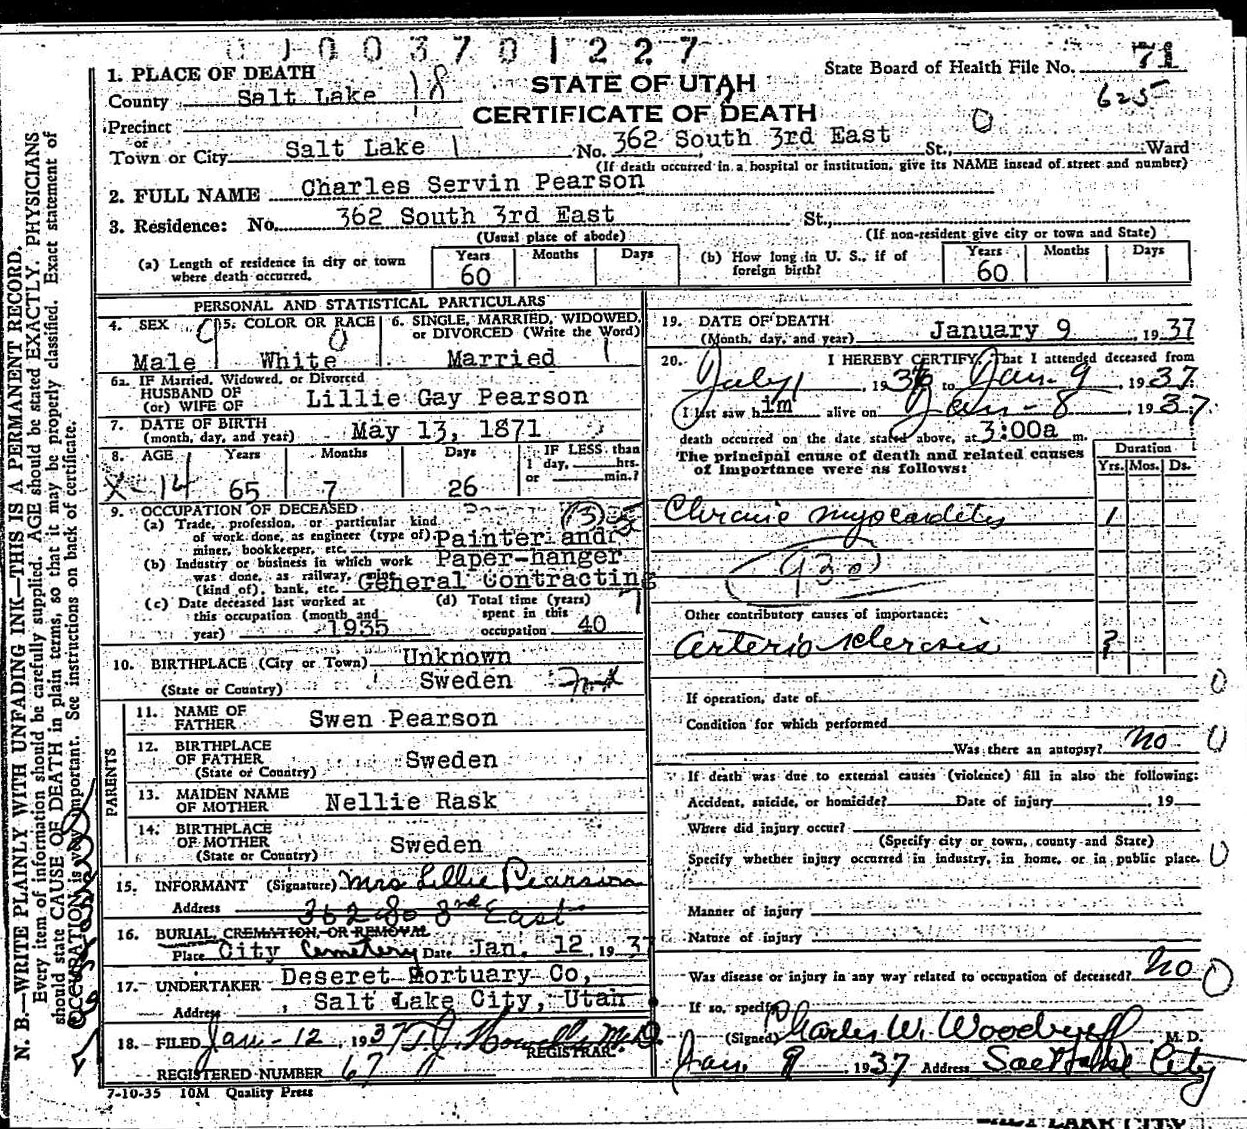 0 J 0 0 3 7 0 1 2 2 7
1. PLACE OF DEATH
County Salt Lake 18
Precinct
or
Town or City Salt Lake 1
STATE OF UTAH
CERTIFICATE OF DEATH
State Board of Health File No. 71
625
0
No. 362 South 3rd East St., Ward
(If death occurred in a hospital or institution, give its NAME insead of street and number)
2. FULL NAME Charles Servin Pearson
3. Residence: No. 362 South 3rd East St.,
(Usual place of abode) (If non-resident give city or town and State)
(a) Length of residence in city or town where death occurred. Years 60 Months Days
(b) How long in U. S., if of foreign birth? Years 60 Months Days
PERSONAL AND STATISTICAL PARTICULARS
4. SEX Male
5. COLOR OR RACE White
6. SINGLE, MARRIED, WIDOWED, or DIVORCED (Write the Word) Married
6a. IF Married, Widowed, or Divorced
HUSBAND OF
(or) WIFE OF Lillie Gay Pearson
7. DATE OF BIRTH
(month, day, and year) May 13, 1871
8. AGE Years Months Days IF LESS than
1 day, hrs.
or min.?
X-14 65 7 26
9. OCCUPATION OF DECEASED
(a) Trade, profession, or particular kind
of work done, as engineer (type of) Painter and
miner, bookkeeper, etc.
(b) Industry or business in which work Paper-hanger
was done, as railway,
(kind of), bank, etc. General Contracting
(c) Date deceased last worked at
this occupation (month and
year) 1935
(d) Total time (years)
spent in this
occupation 40
10. BIRTHPLACE (City or Town) Unknown
(State or Country) Sweden
PARENTS
11. NAME OF
FATHER Swen Pearson
12. BIRTHPLACE
OF FATHER Sweden
(State or Country)
13. MAIDEN NAME
OF MOTHER Nellie Rask
14. BIRTHPLACE
OF MOTHER Sweden
(State or Country)
15. INFORMANT (Signature) Mrs Lillie Pearson
Address 362 So 3rd East
16. BURIAL, CREMATION, OR REMOVAL
Place City Cemetery Date Jan. 12, 1937
17. UNDERTAKER Deseret Mortuary Co,
Address , Salt Lake City, Utah
18. FILED Jan-12, 1937 T.J. Howells M.D.
REGISTRAR.
REGISTERED NUMBER 67
7-10-35 10M Quality Press
19. DATE OF DEATH
(Month, day, and year) January 9 1937
20. I HEREBY CERTIFY, That I attended deceased from
July 1, 1936 to Jan-9, 1937
I last saw him alive on Jan-8, 1937
death occurred on the date stated above, at 3:00a m.
The principal cause of death and related causes
of importance were as follows:
Duration
Yrs. Mos. Ds.
Chronic myocarditis 1
930
Other contributory causes of importance:
Arterio sclerosis ?
If operation, date of
Condition for which performed
Was there an autopsy? no
If death was due to external causes (violence) fill in also the following:
Accident, suicide, or homicide? Date of injury 19
Where did injury occur?
(Specify city or town, county and State)
Specify whether injury occurred in industry, in home, or in public place.
Manner of injury
Nature of injury
Was disease or injury in any way related to occupation of deceased? no
If so, specify
(Signed) Charles W. Woodruff M. D.
Jan. 9 1937 Address Salt Lake City
N. B.—WRITE PLAINLY WITH UNFADING INK—THIS IS A PERMANENT RECORD.
Every item of information should be carefully supplied. AGE should be stated EXACTLY. PHYSICIANS
should state CAUSE OF DEATH in plain terms, so that it may be properly classified. Exact statement of
OCCUPATION is very important. See instructions on back of certificate.
SALT LAKE CITY